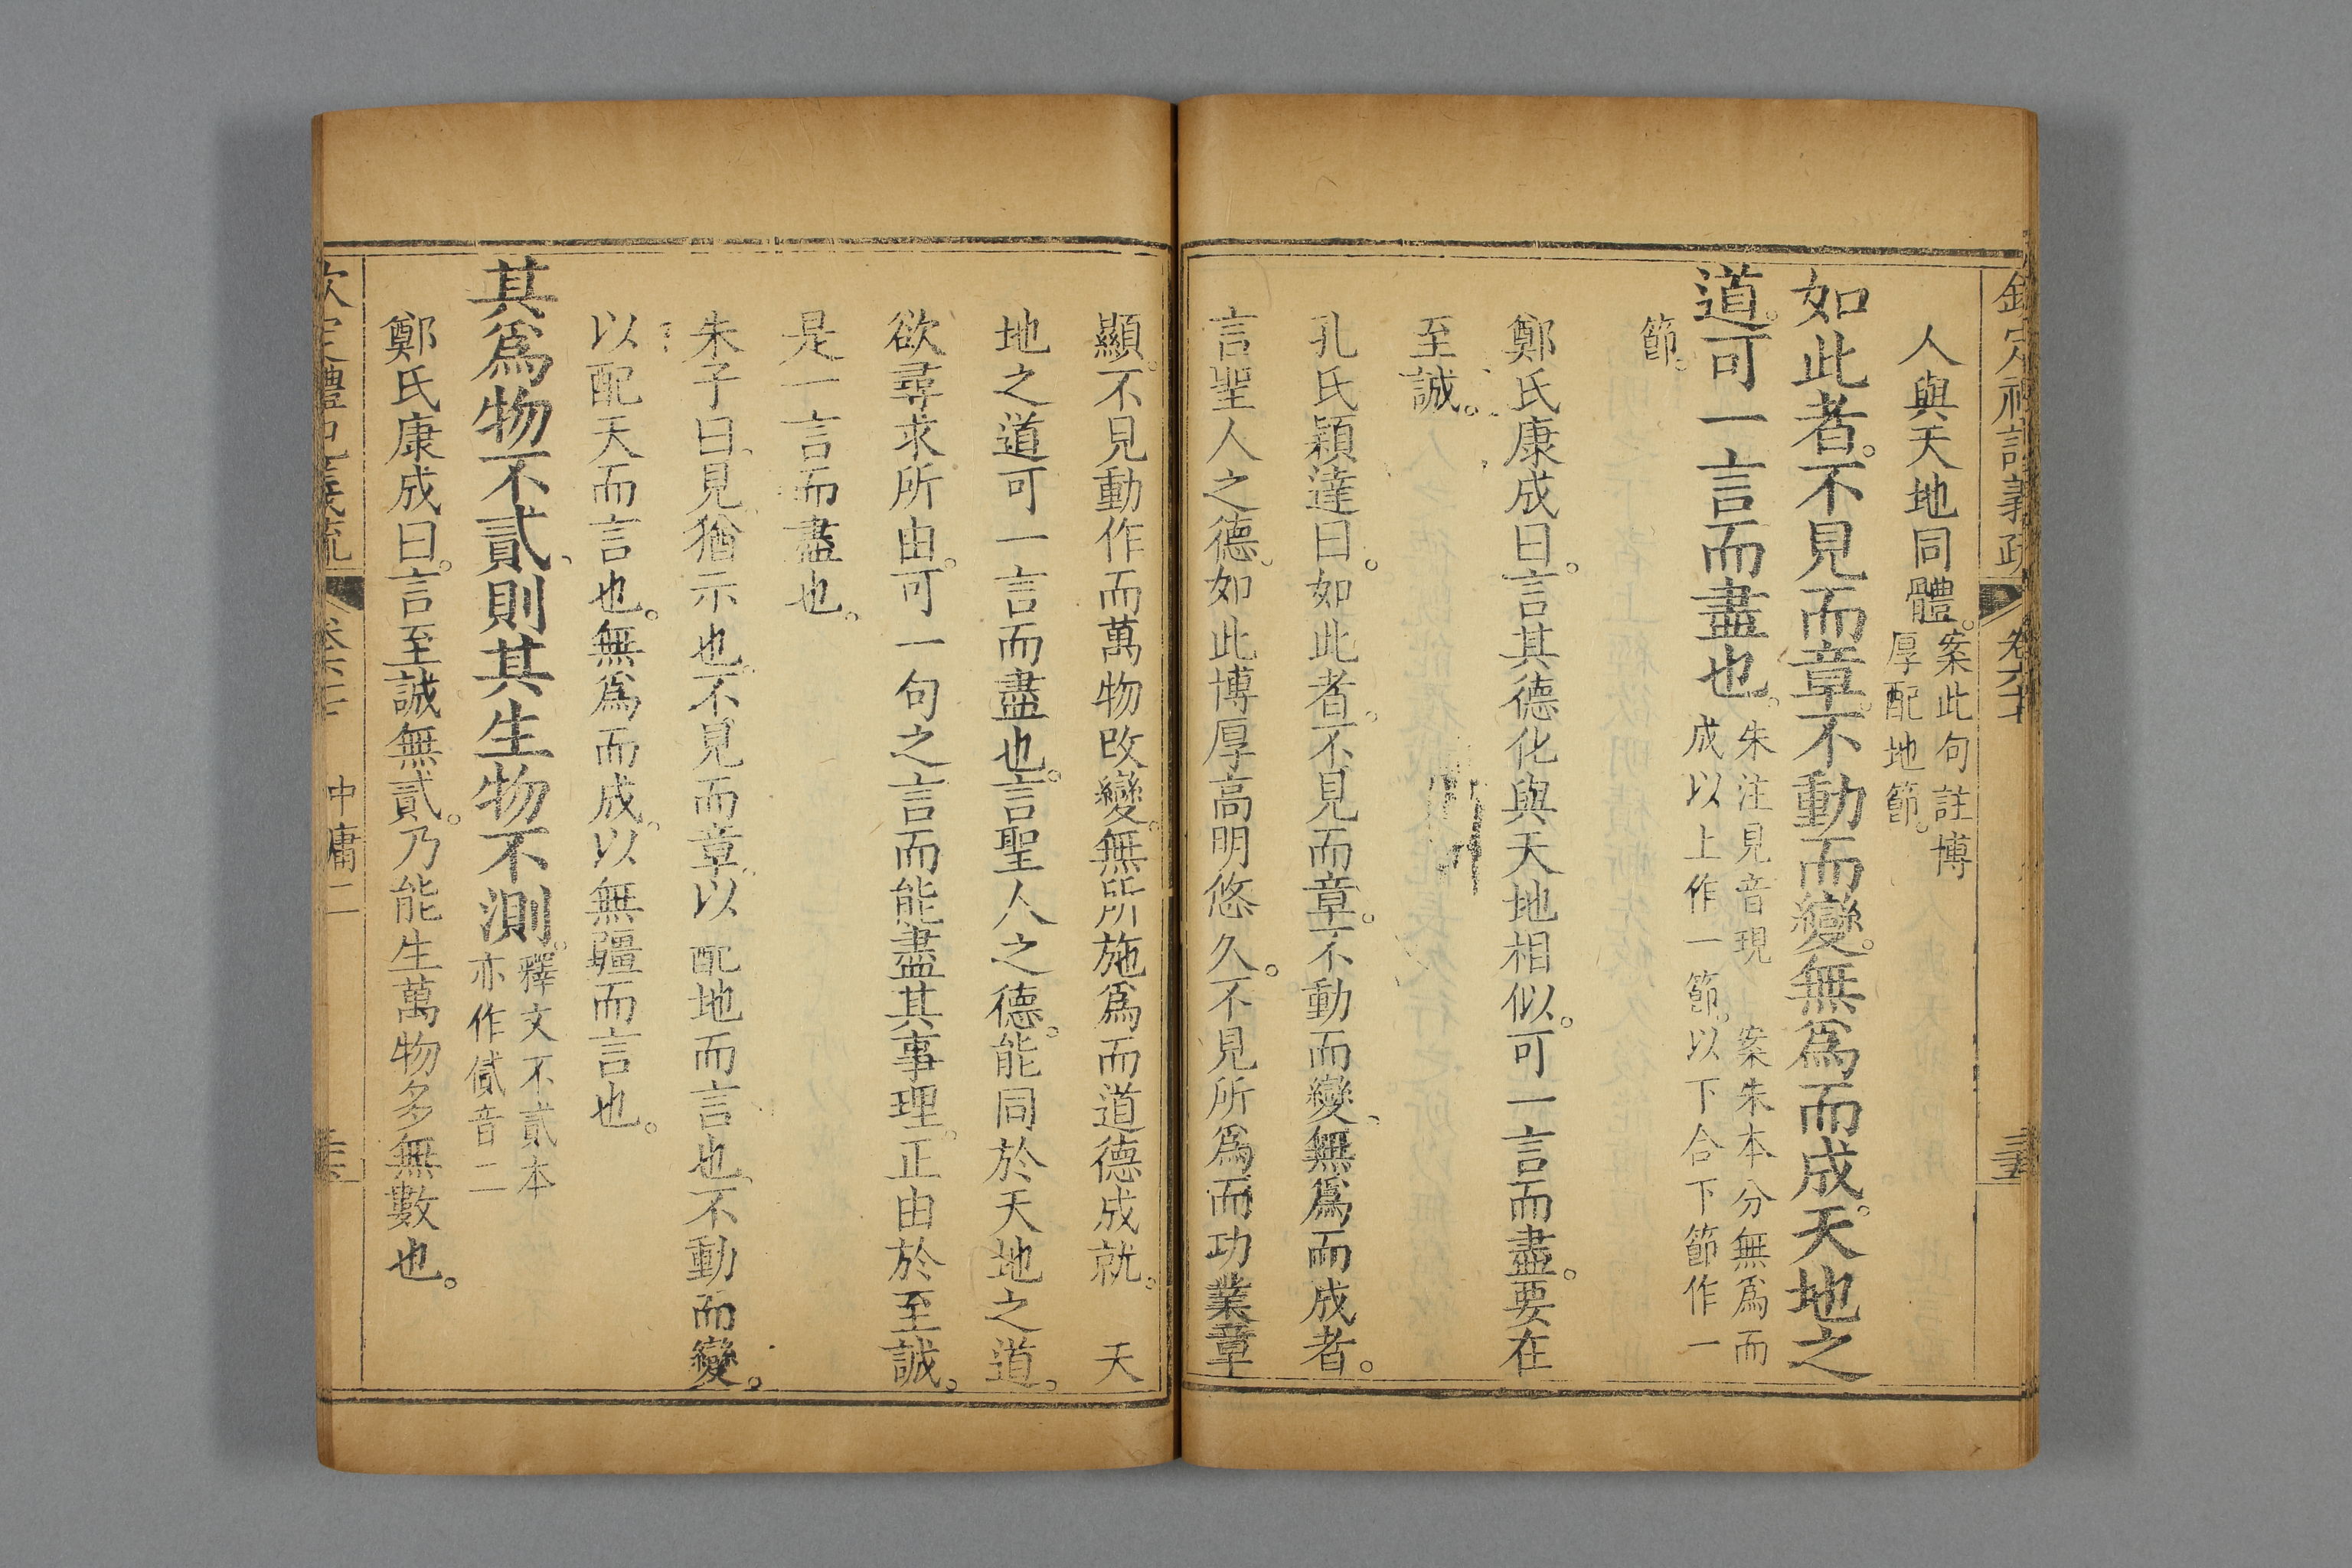 人與天地同體。案此句註博
厚配地節。
如此者。不見而章。不動而變。無爲而成。天地之
道。可一言而盡也。朱注見音現　案朱本分無爲而
成以上作一節。以下合下節作一
節。
鄭氏康成曰。言其德化與天地相似。可一言而盡。要在
至誠。
孔氏穎達曰。如此者。不見而章。不動而變、無爲而成者。
言聖人之德。如此博厚高明悠久。不見所爲而功業章
顯。不見動作而萬物改變。無所施爲而道德成就。　天
地之道可一言而盡也。言聖人之德。能同於天地之道。
欲尋求所由。可一句之言而能盡其事理。正由於至誠。
是一言而盡也。
朱子曰、見、猶示也。不見而章、以配地而言也、不動而變。
以配天而言也。無爲而成。以無疆而言也。
其爲物不貳、則其生物不測。釋文不貳本
亦作貣音二
鄭氏康成曰。言至誠無貳。乃能生萬物多無數也。
中庸二